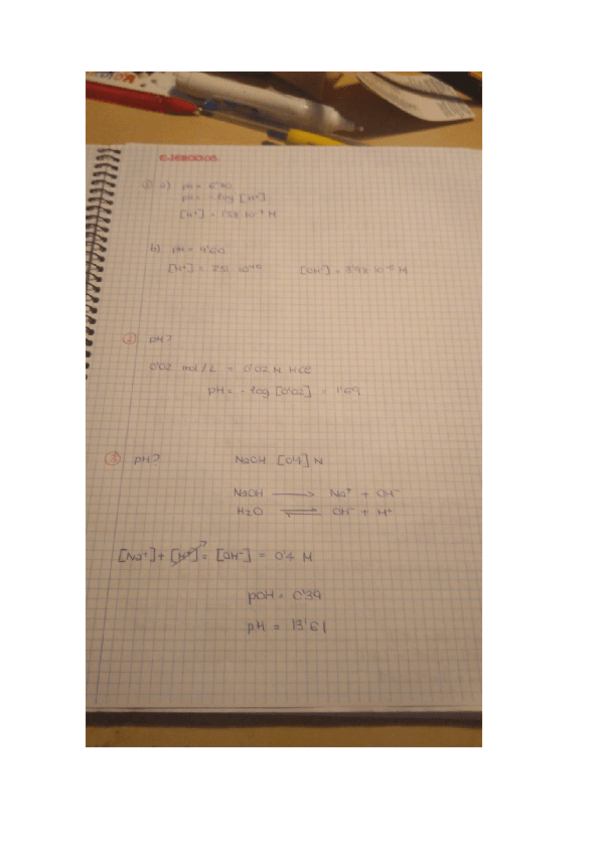 EJERCICIOS
① a) pH =
pH = - log [H⁺]
[H⁺] = M
b) pH = 4'60
[H⁺] = [OH⁻] = 3'98 · 10 M
② pH?
0'02 mol/L = 0'02 N HCl
pH = - log [0'02] = 1'69
③ pH? NaOH [0'4] N
NaOH → Na⁺ + OH⁻
H₂O ⇌ OH⁻ + H⁺
[Na⁺] + [H⁺] = [OH⁻] = 0'4 M
pOH = 0'39
pH = 13'61